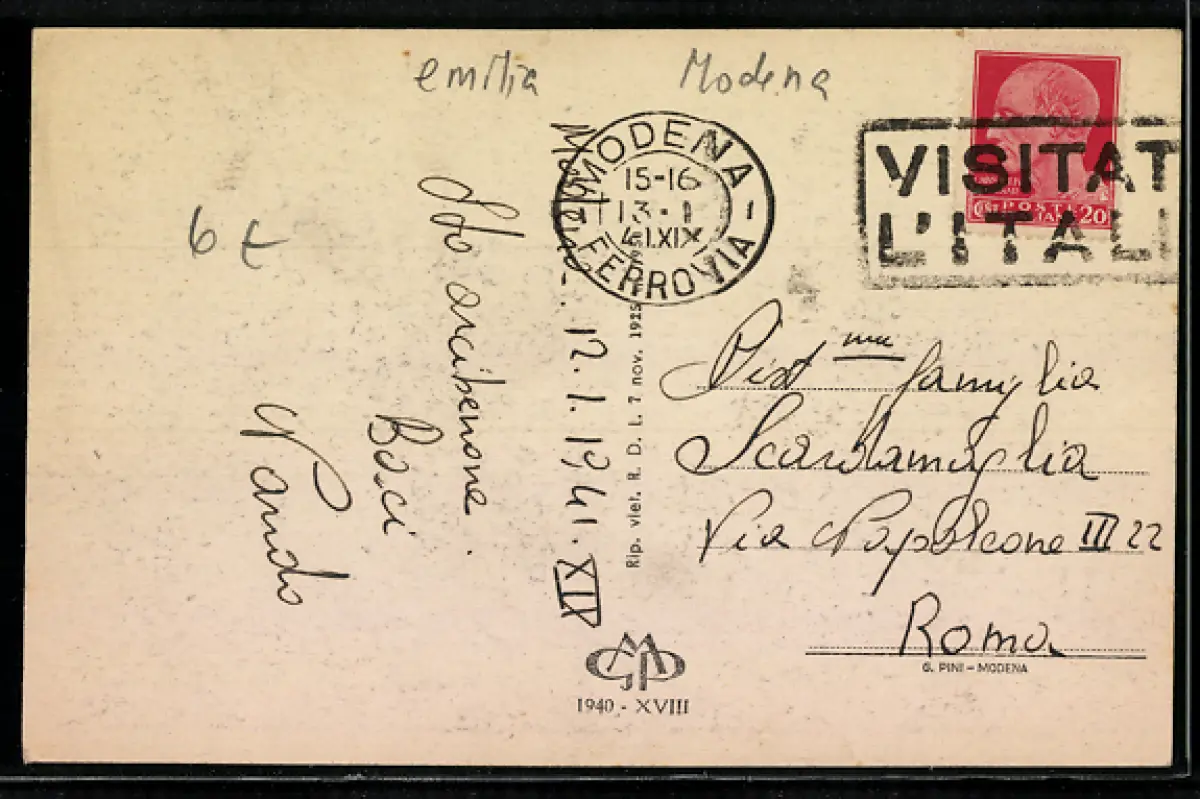 emilia Modena
MODENA
15-16
13-1
41.XIX
FERROVIA
VISITAT
L'ITALI
POSTE
ITALIANE
CENT 20
6 €
Modena - 12.1.1941.XIX
Sto arcibenone.
Baci
Nando
Rip. viet. R. D. L. 7 nov. 1925
Dist ma famiglia
Scardamaglia
Via Napoleone III 22
Roma
G. PINI - MODENA
1940 - XVIII